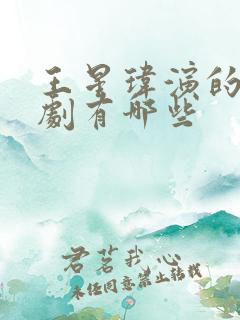 王星瑋演的
劇有哪些
君茗我心
未经同意禁止转载